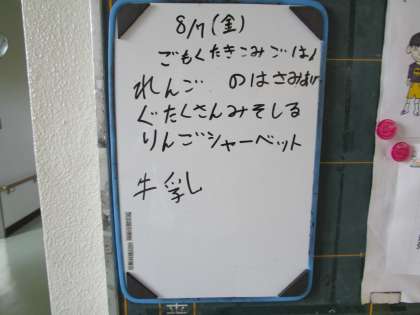 8/7(金)
ごもくたきこみごはん
れんこんのはさみあげ
ぐだくさんみそしる
りんごシャーベット
牛乳